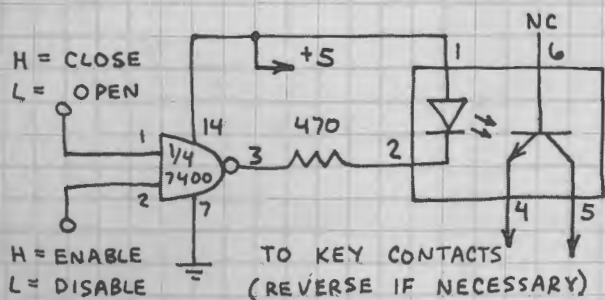 NC
H = CLOSE
L = OPEN
+5
1
6
1
14
1/4
7400
3
470
2
2
7
4
5
H = ENABLE
L = DISABLE
TO KEY CONTACTS
(REVERSE IF NECESSARY)